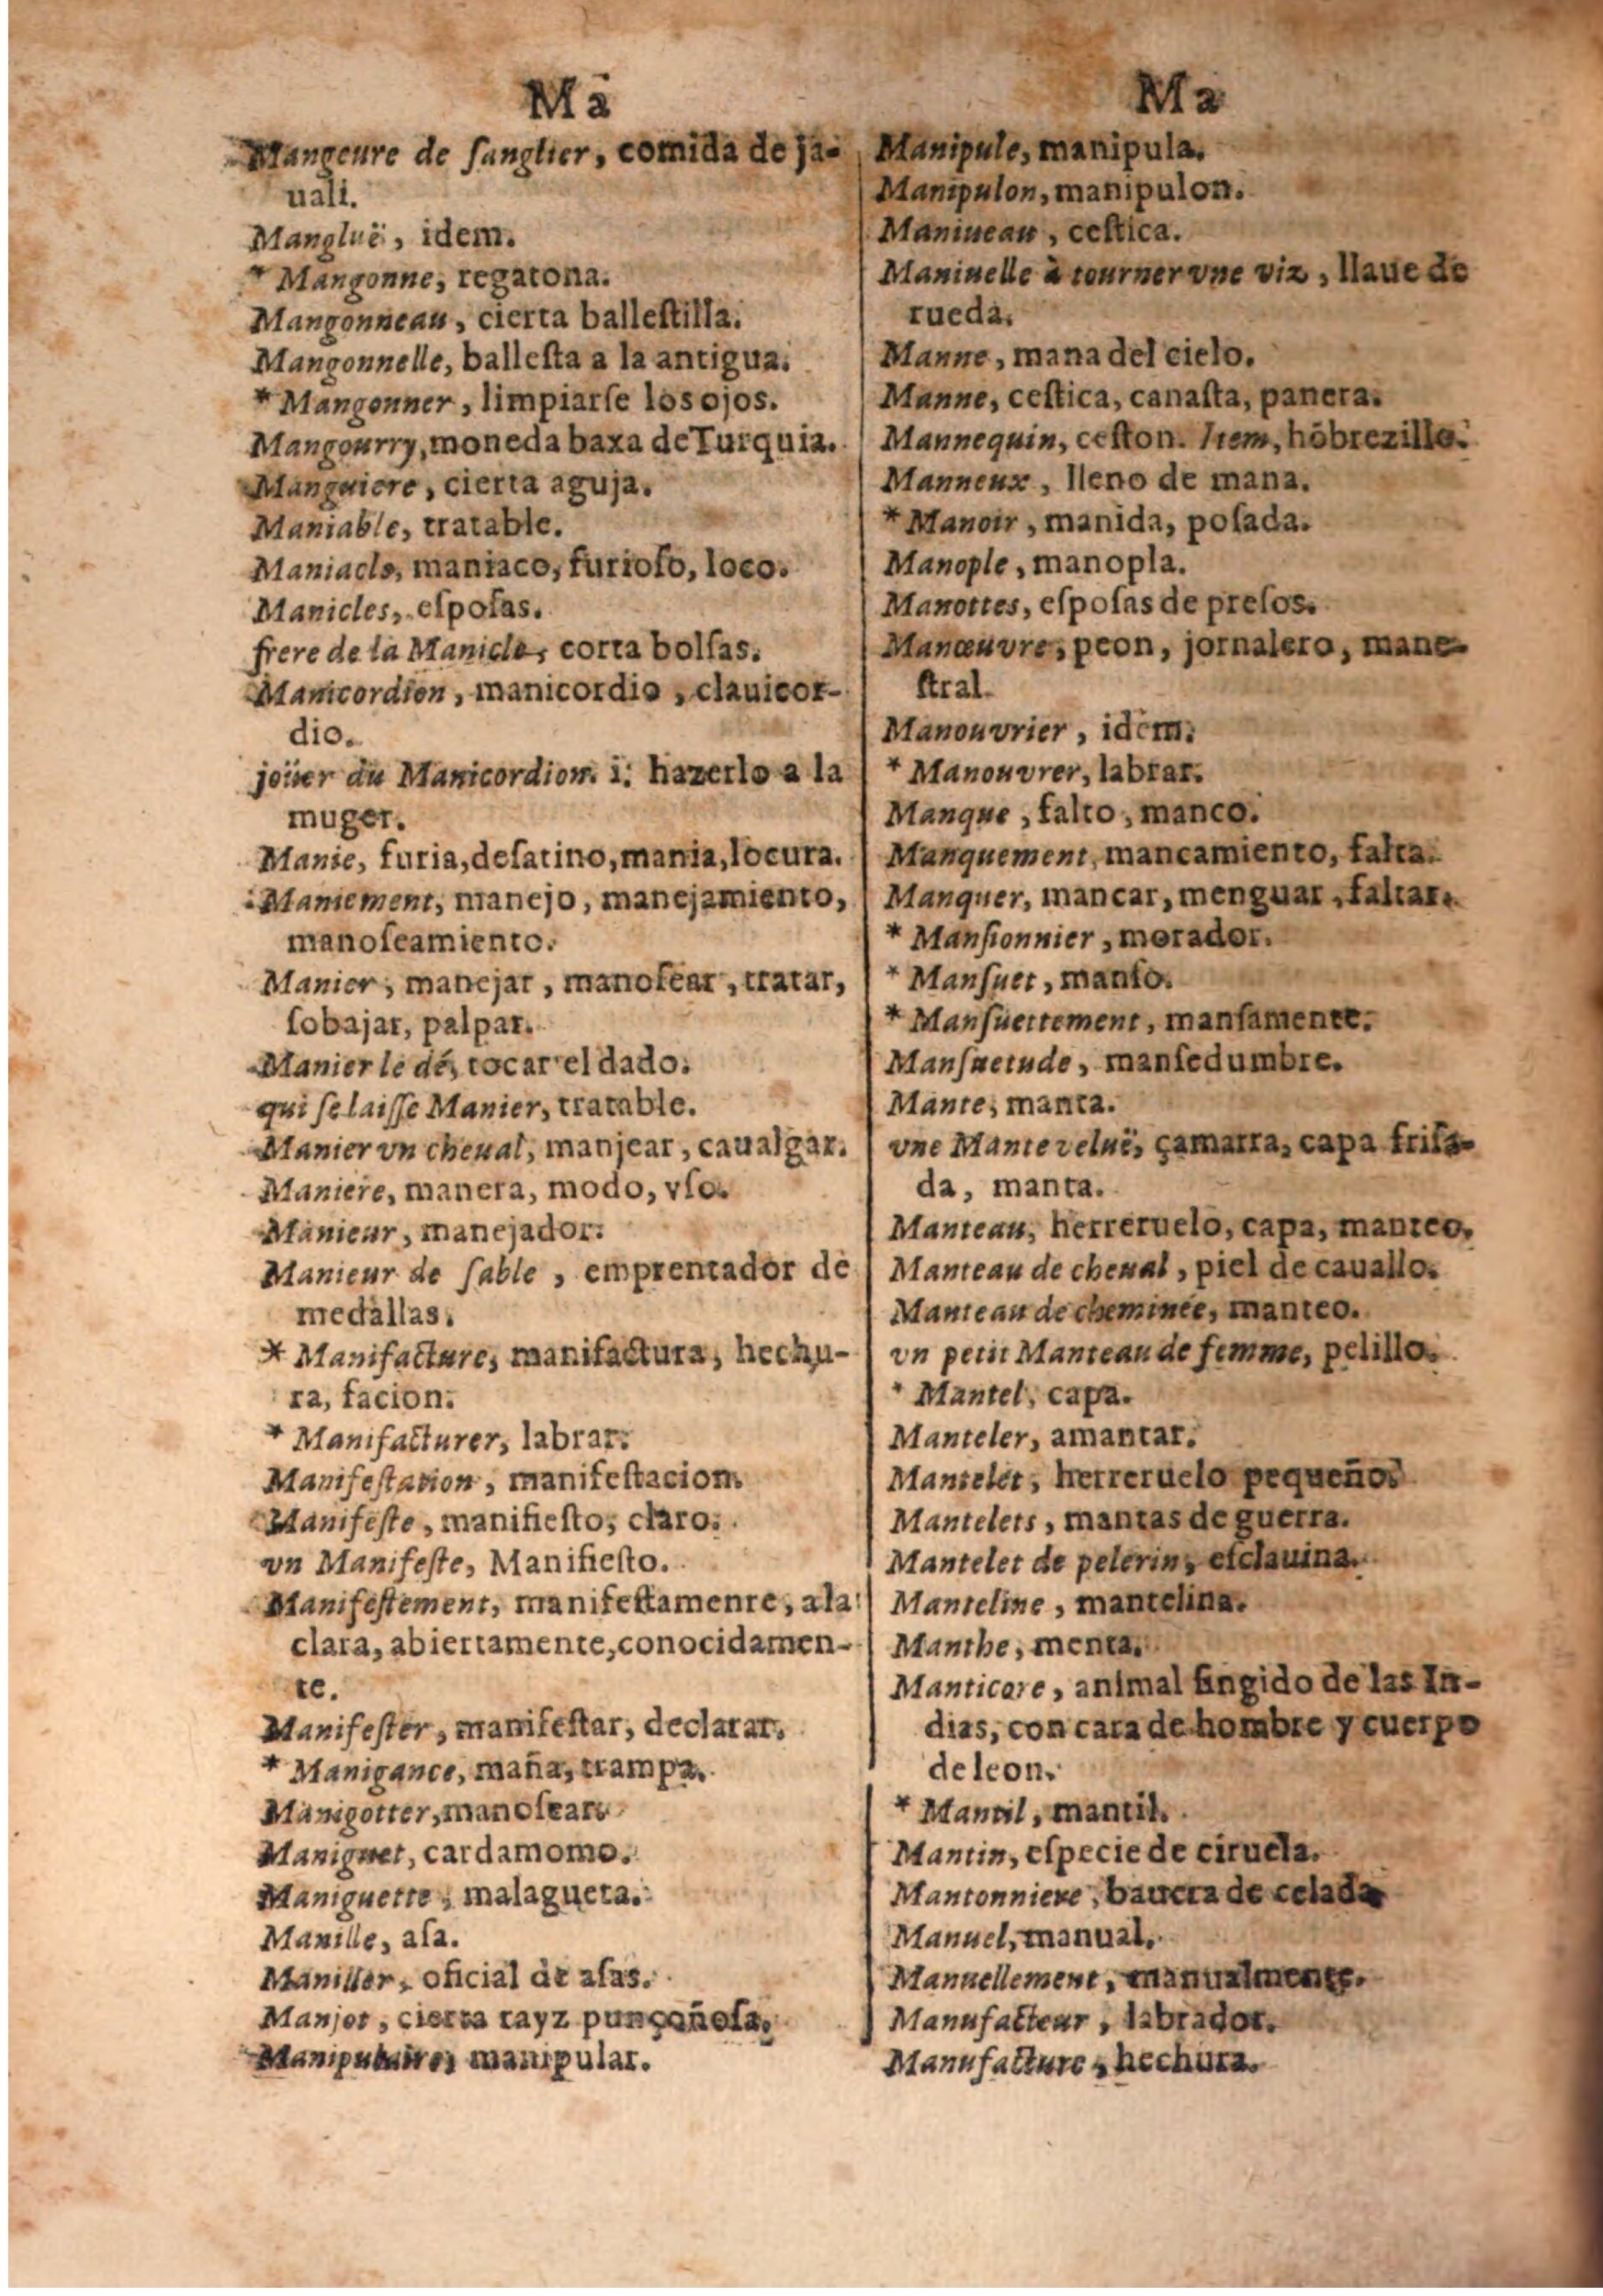 Ma
Mangeure de ſanglier, comida de ja-
uali.
Mangluë, idem.
* Mangonne, regatona.
Mangonneau, cierta balleſtilla.
Mangonnelle, balleſta a la antigua.
* Mangonner, limpiarſe los ojos.
Mangourry, moneda baxa de Turquia.
Manguiere, cierta aguja.
Maniable, tratable.
Maniacle, maniaco, furioſo, loco.
Manicles, eſpoſas.
frere de la Manicle, corta bolſas.
Manicordion, manicordio, clauicor-
dio.
joüer du Manicordion. i. hazerlo a la
muger.
Manie, furia, deſatino, mania, locura.
Maniement, manejo, manejamiento,
manoſeamiento.
Manier, manejar, manoſear, tratar,
ſobajar, palpar.
Manier le dé, tocar el dado.
qui ſe laiſſe Manier, tratable.
Manier vn cheual, manjear, caualgar.
Maniere, manera, modo, vſo.
Manieur, manejador.
Manieur de ſable, emprentador de
medallas.
* Manifacture, manifactura, hechu-
ra, facion.
* Manifacturer, labrar.
Manifeſtation, manifeſtacion.
Manifeſte, manifieſto, claro.
vn Manifeſte, Manifieſto.
Manifeſtement, manifeſtamenre, a la
clara, abiertamente, conocidamen-
te.
Manifeſter, manifeſtar, declarar.
* Manigance, maña, trampa.
Manigotter, manoſear.
Maniguet, cardamomo.
Maniguette, malagueta.
Manille, aſa.
Maniller, oficial de aſas.
Manjot, cierta rayz punçoñoſa.
Manipulaire, manipular.
Ma
Manipule, manipula.
Manipulon, manipulon.
Maniueau, ceſtica.
Maniuelle à tourner vne viz, llaue de
rueda.
Manne, mana del cielo.
Manne, ceſtica, canaſta, panera.
Mannequin, ceſton. Item, hõbrezillo.
Manneux, lleno de mana.
* Manoir, manida, poſada.
Manople, manopla.
Manottes, eſpoſas de preſos.
Manœuvre, peon, jornalero, mane-
ſtral.
Manouvrier, idem.
* Manouvrer, labrar.
Manque, falto, manco.
Manquement, mancamiento, falta.
Manquer, mancar, menguar, faltar.
* Manſionnier, morador.
* Manſuet, manſo.
* Manſuettement, manſamente.
Manſuetude, manſedumbre.
Mante, manta.
vne Mante veluë, çamarra, capa friſa-
da, manta.
Manteau, herreruelo, capa, manteo.
Manteau de cheual, piel de cauallo.
Manteau de cheminée, manteo.
vn petit Manteau de femme, pelillo.
* Mantel, capa.
Manteler, amantar.
Mantelet, herreruelo pequeño.
Mantelets, mantas de guerra.
Mantelet de pelerin, eſclauina.
Manteline, mantelina.
Manthe, menta.
Manticore, animal fingido de las In-
dias, con cara de hombre y cuerpo
de leon.
* Mantil, mantil.
Mantin, eſpecie de ciruela.
Mantonniere, bauera de celada
Manuel, manual.
Manuellement, manualmente.
Manufacteur, labrador.
Manufacture, hechura.